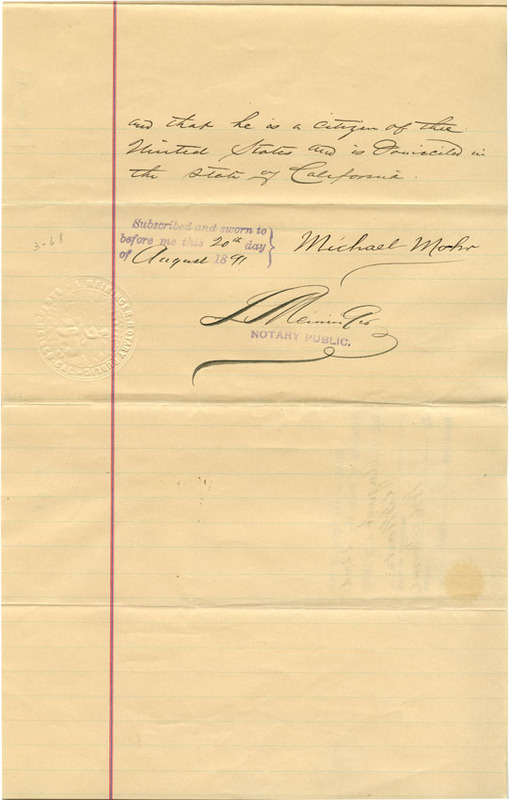 and that he is a citizen of thee
United States and is Domiciled in
the state of California.
3-68
Subscribed and sworn to
before me this 20th day
of August 1891
Michael Mohr
NOTARY PUBLIC.